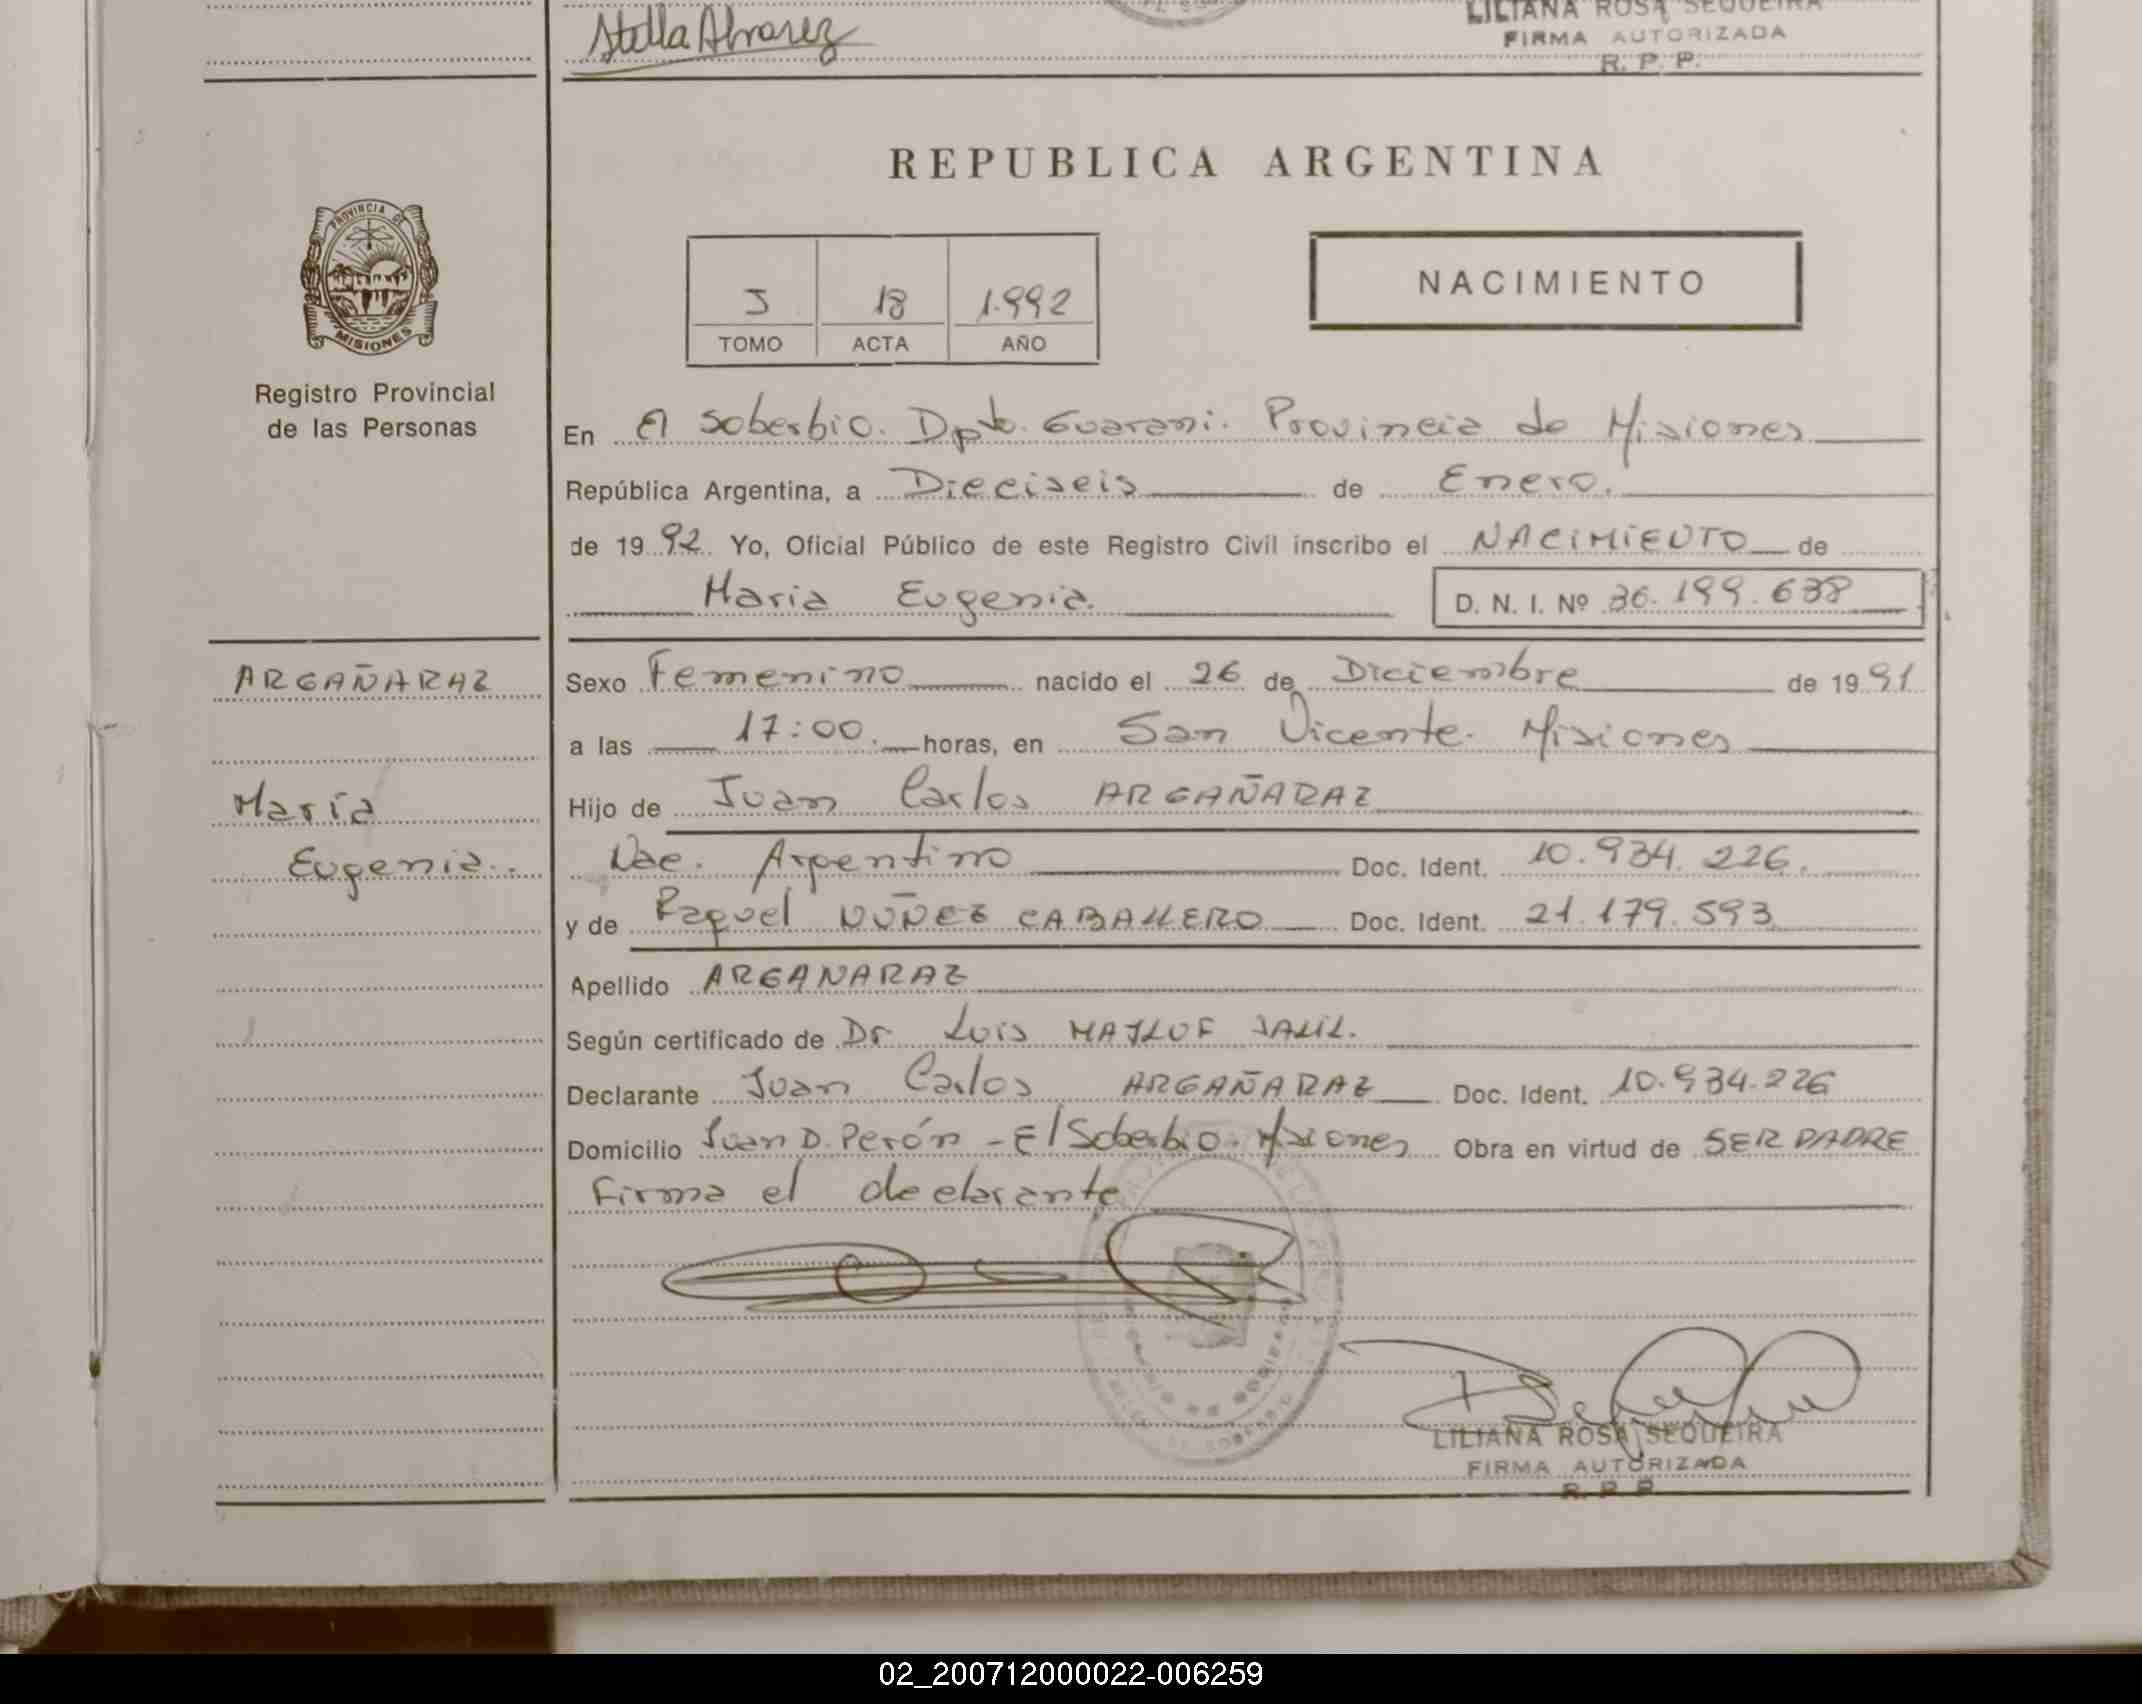 Stella Alvarez
LILIANA ROSA SEQUEIRA
FIRMA AUTORIZADA
R. P. P.
REPUBLICA ARGENTINA
PROVINCIA DE
MISIONES
Registro Provincial
de las Personas
18 1.992
TOMO ACTA AÑO
NACIMIENTO
En El Soberbio. Dpto. Guarani. Provincia de Misiones
República Argentina, a Dieciseis de Enero.
de 1992 Yo, Oficial Público de este Registro Civil inscribo el NACIMIENTO de
Maria Eugenia. D. N. I. Nº 36.199.638
ARGAÑARAZ
María
Eugenia.
Sexo Femenino nacido el 26 de Diciembre de 1991
a las 17:00. horas, en San Vicente. Misiones
Hijo de Juan Carlos ARGAÑARAZ
Nac. Argentino Doc. Ident. 10.934.226.
y de Raquel NUÑEZ CABALLERO Doc. Ident. 21.179.593
Apellido ARGANARAZ
Según certificado de Dr Luis MAJLUF JALIL.
Declarante Juan Carlos ARGAÑARAZ Doc. Ident. 10.934.226
Domicilio Juan D. Perón - El Soberbio. Misiones Obra en virtud de SER PADRE
Firma el declarante
LILIANA ROSA SEQUEIRA
FIRMA AUTORIZADA
R. P. P.
02_200712000022-006259